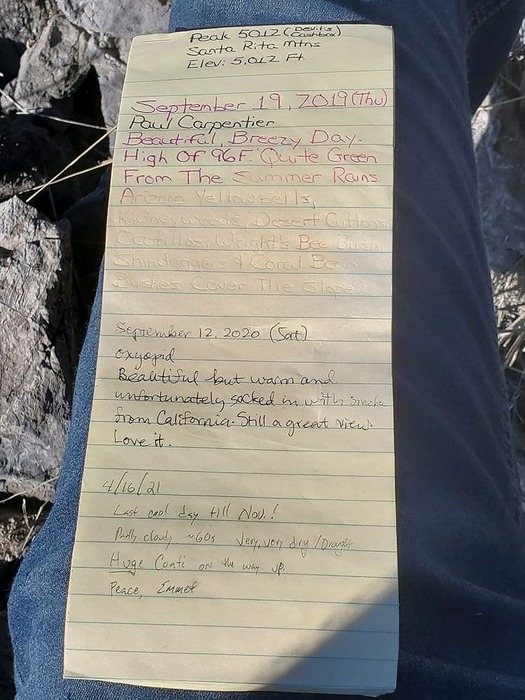 Peak 5012 (Devil's Cashbox)
Santa Rita Mtns
Elev: 5,012 Ft
September 19, 2019 (Thu)
Paul Carpentier
Beautiful, Breezy Day.
High Of 96F. Quite Green
From The Summer Rains.
Arizona Yellowbells,
Kidneywoods, Desert Cottons,
Ocotillos, Wright's Bee Bush
Shindaggers & Coral Bean
Bushes Cover The Slope.
September 12, 2020 (Sat)
oxyopid
Beautiful but warm and
unfortunately socked in with smoke
from California. Still a great view.
Love it.
4/16/21
Last cool day till Nov.!
Partly cloudy ~60s Very, very dry/Drought
Huge on the way up.
Peace, Emmet